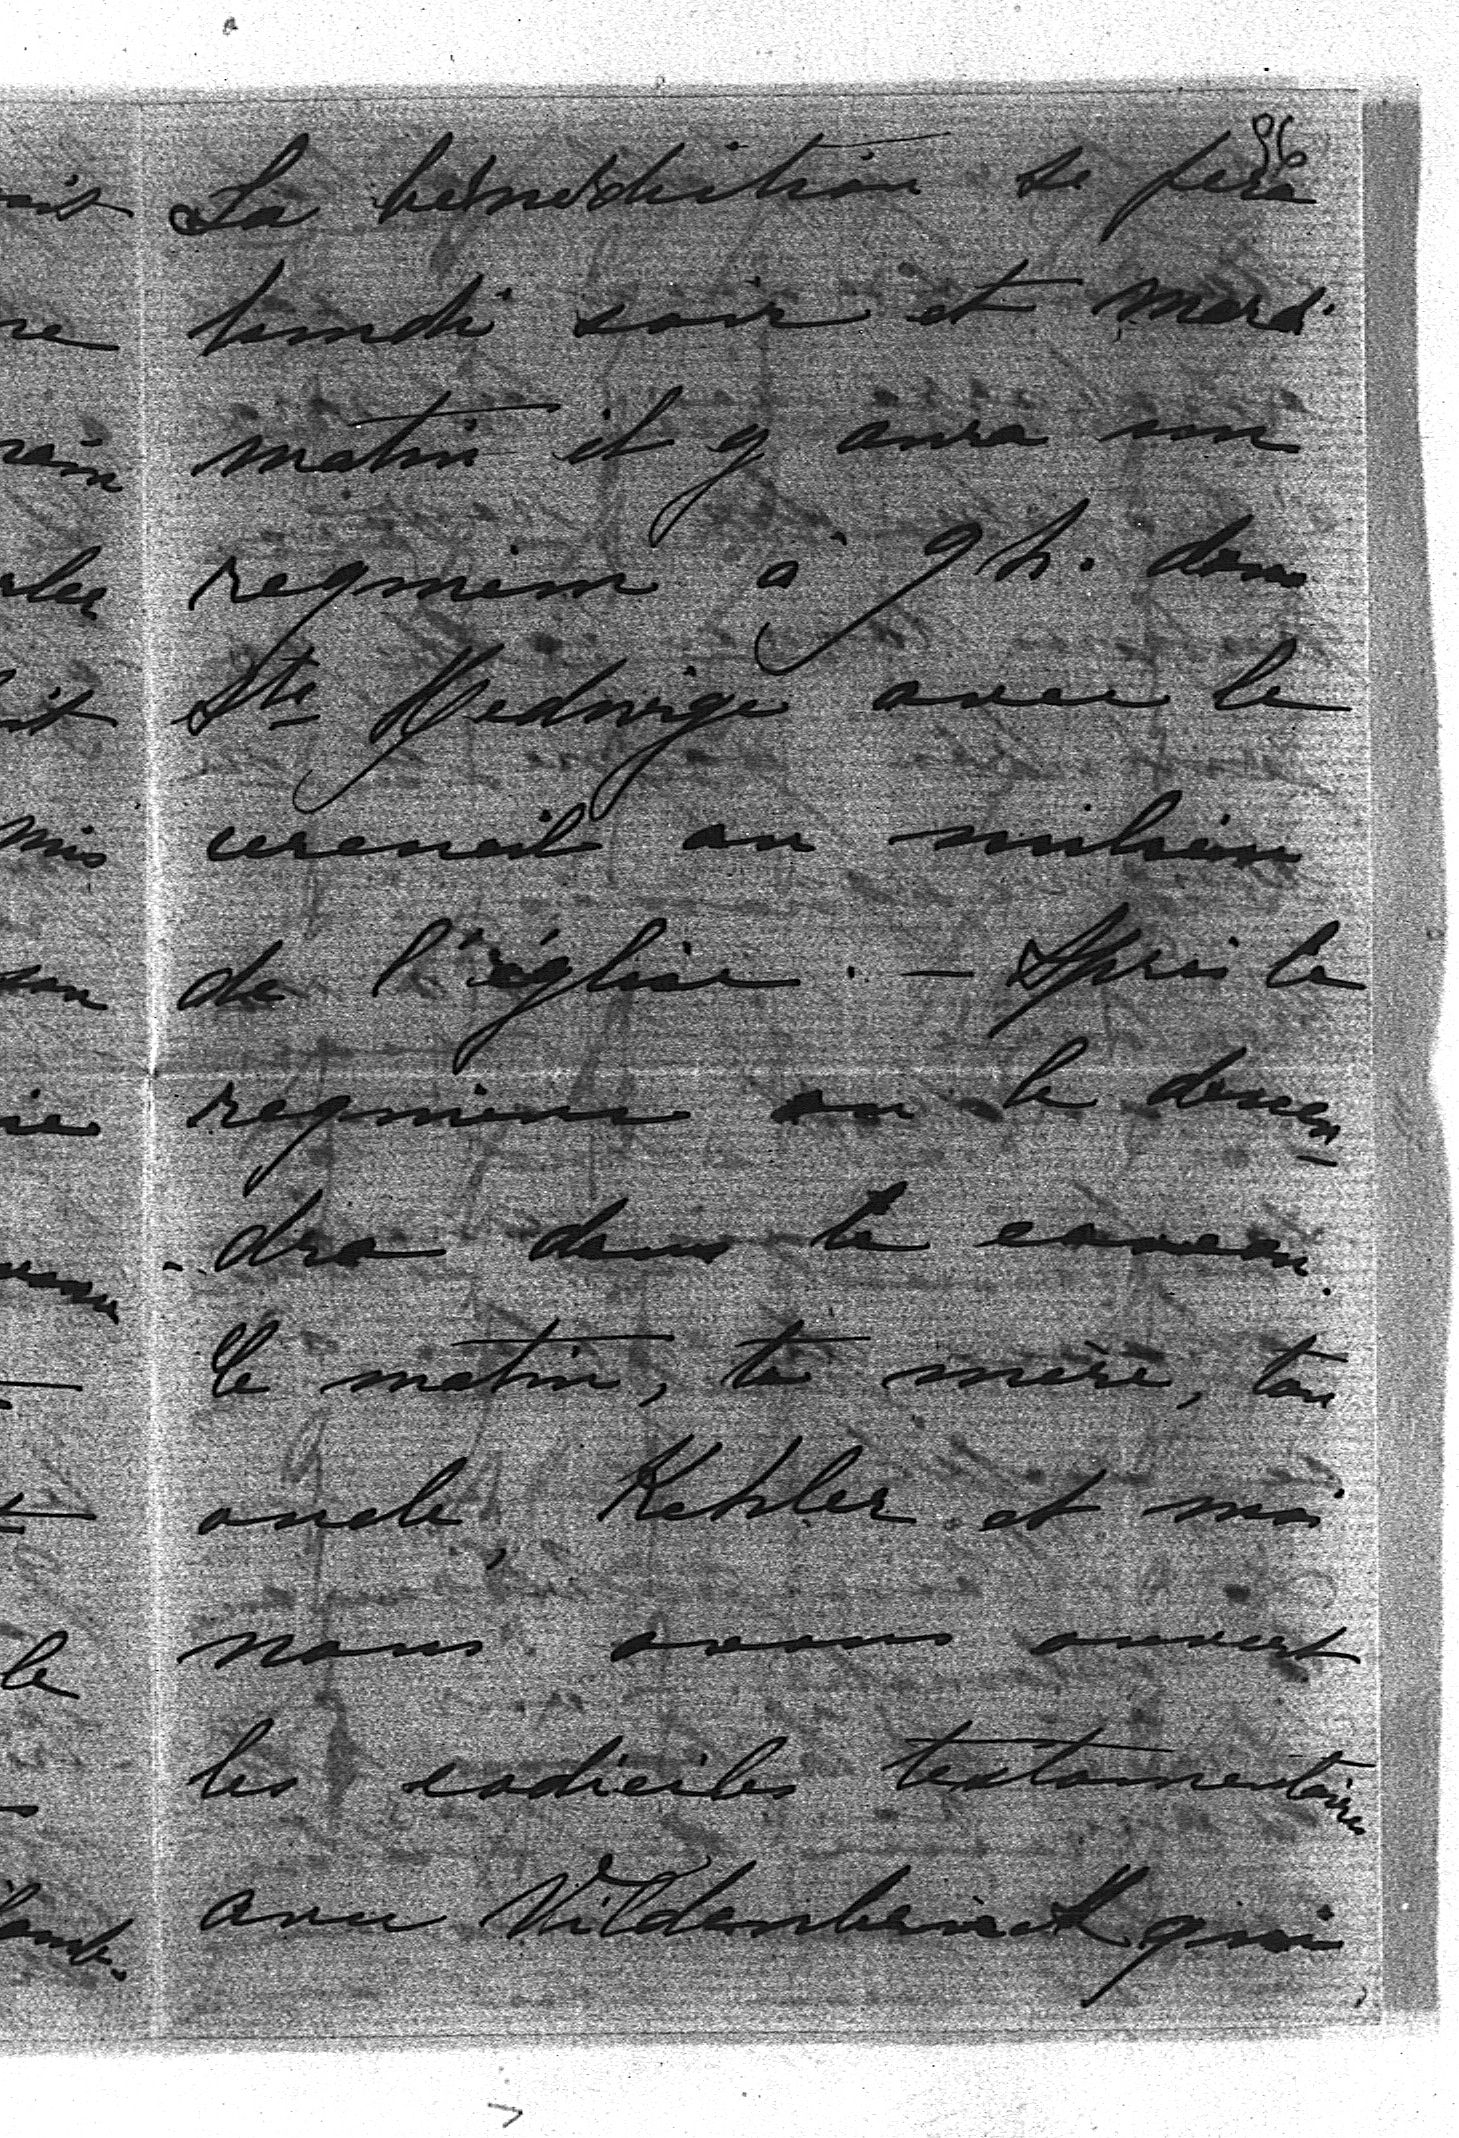 96
La bénédiction se fera
lundi soir et mardi
matin il y aura un
requiem à 9 h. dans
Ste Hedwige avec le
cercueil au milieu
de l'église. — Après le
requiem on le descen-
-dra dans le caveau.
Ce matin, ta mère, ton
oncle, Kehler et moi
nous avons ouvert
les codiciles testamentaires
avec Wildenbruch qui